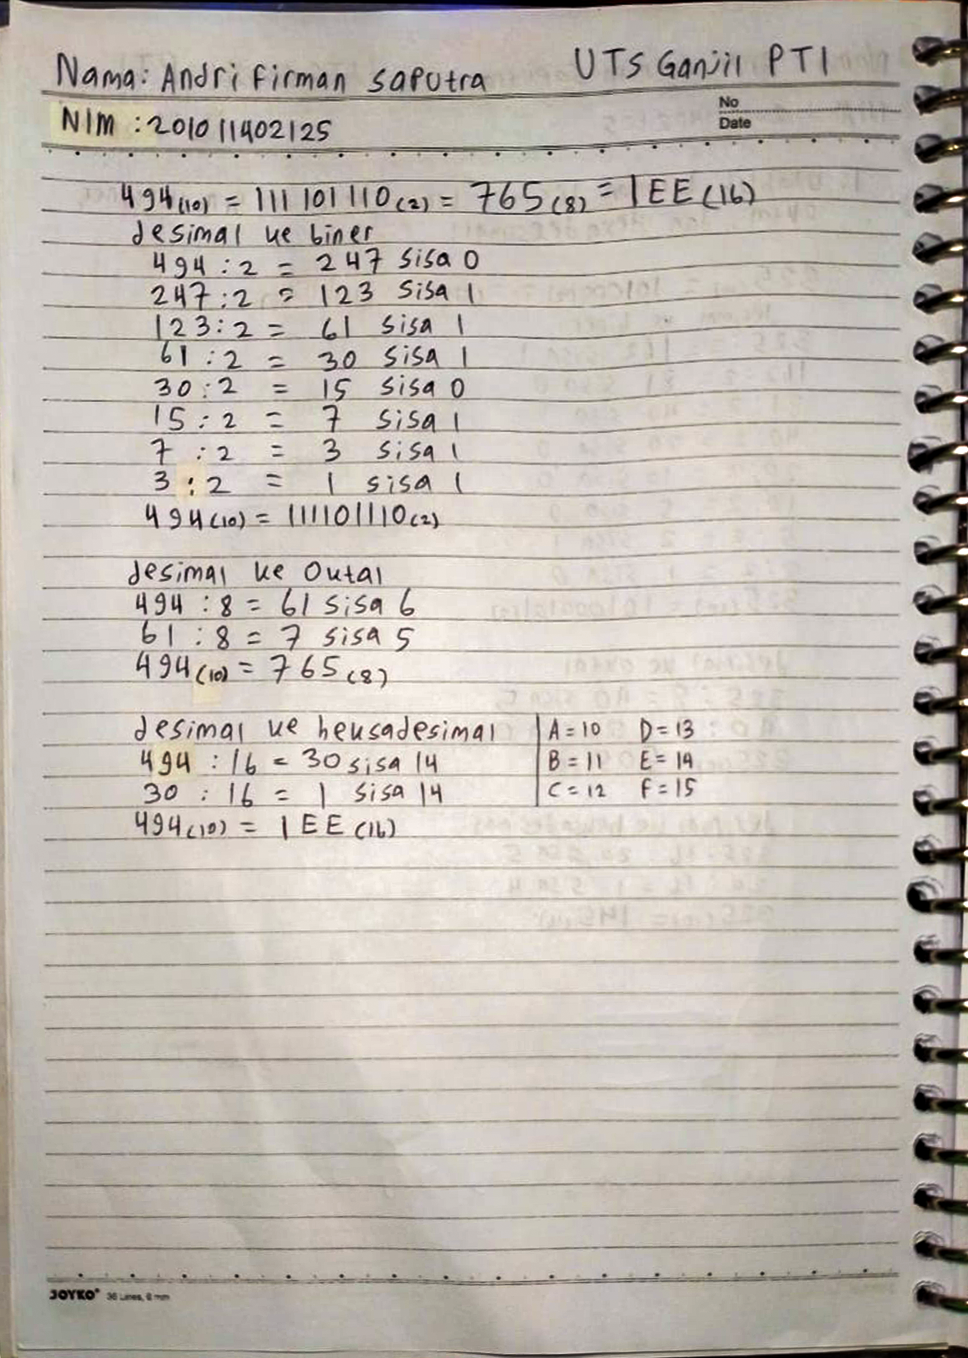 Nama: Andri Firman Saputra UTS Ganjil PTI
No
NIM : 201011402125
Date
494(10) = 111 101 110(2) = 765(8) = 1EE(16)
desimal ke biner
494 : 2 = 247 sisa 0
247 : 2 = 123 sisa 1
123 : 2 = 61 sisa 1
61 : 2 = 30 sisa 1
30 : 2 = 15 sisa 0
15 : 2 = 7 sisa 1
7 : 2 = 3 sisa 1
3 : 2 = 1 sisa 1
494(10) = 111101110(2)
desimal ke Oktal
494 : 8 = 61 sisa 6
61 : 8 = 7 sisa 5
494(10) = 765(8)
desimal ke heksadesimal A = 10 D = 13
494 : 16 = 30 sisa 14 B = 11 E = 14
30 : 16 = 1 sisa 14 C = 12 F = 15
494(10) = 1EE(16)
JOYKO 36 Lines, 8 mm